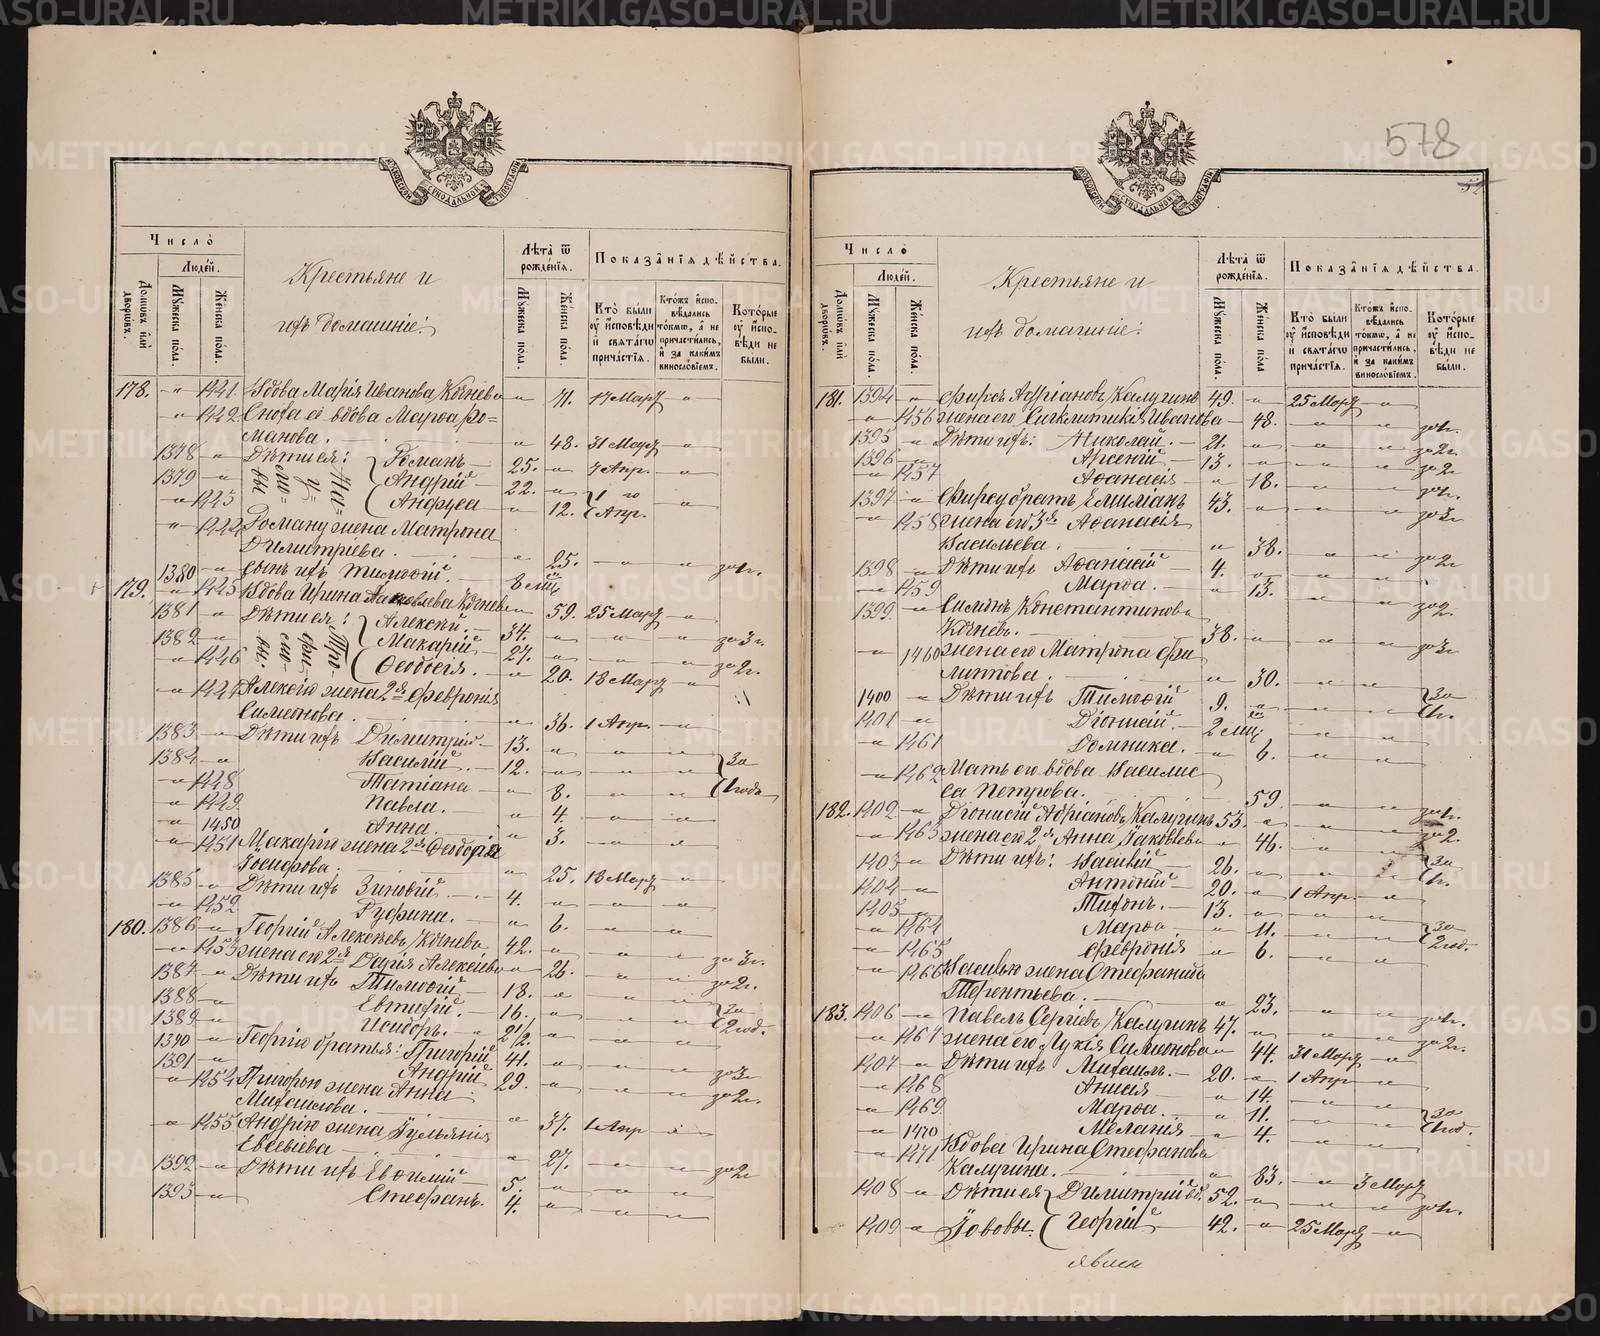 METRIKI.GASO-URAL.RU
578
Число̀
Людей.
Домѡвъ или дворѡвъ.
Мꙋжеска пола.
Женска пола.
Крестьяне и
ихъ домашніе:
Лѣта ѿ рожденїѧ.
Мꙋжеска пола.
Женска пола.
Показанїѧ дѣйства.
Кто были оу исповѣди и свѧтагѡ причастїѧ.
Ктожъ исповѣдались токмѡ, а не причастились, и за какимъ винословїемъ.
Которые оу исповѣди не были.
178. " 1441 Вдова Марія Иванова " 71. 17 Марта "
" 1442 Сноха ея вдова Марѳа Ро=
манова. " 48. 31 Марта "
1378 " Дѣти ея: Романъ 25. " 7 Апр. "
1379 " Андрій 22. "
" 1443 Андрува " 12. 1го Апр. "
" 1444 Роману жена Матрона
Димитріева. " 25. " " за 1г.
1380 " Сынъ ихъ Тимоѳій. 8 мѣс.
179. " 1445 Вдова Ирина Яковлева " 59. 25 Марта "
1381 " Дѣти ея: Алексѣй 34. " " " за 3г.
1382 " Макарій 27. " " " за 2г.
" 1446 Ѳеодосія. " 20. 18 Марта "
" 1447 Алексію жена 2я Февронія
Симеонова. " 36. 1 Апр. "
1383 " Дѣти ихъ Димитрій 13. " " "
1384 " Василій. 12. " " " за
" 1448 Татіана " 8. " " 1 годъ
" 1449 Павла. " 4. " "
" 1450 Анна. " 3. " "
" 1451 Макарію жена 2я Ѳеодора
Іосифова. " 25. 18 Марта "
1385 " Дѣти ихъ Зиновій 4. " " "
" 1452 Руфина. " 6. " "
180. 1386 " Георгій Алексѣевъ 42. " " " за 3г.
" 1453 жена его 2я Дарія Алексіева " 26. " " за 2г.
1387 " Дѣти ихъ Тимоѳій 18. " " " за
1388 " Евтихій. 16. " " " 2 год.
1389 " Исидоръ. 2½. " " "
1390 " Георгію братья: Григорій 41. " " " за 3г
1391 " Андрій 29. " " " за 2г.
" 1454 Григорью жена Анна
Михаилова. " 37. 1 Апр "
" 1455 Андрію жена Іульянія
Евсевіева " 27. " " за 2г
1392 " Дѣти ихъ Евѳимій 5. " " "
1393 " Стефанъ. 4. " " "
Число̀
Людей.
Домѡвъ или дворѡвъ.
Мꙋжеска пола.
Женска пола.
Крестьяне и
ихъ домашніе:
Лѣта ѿ рожденїѧ.
Мꙋжеска пола.
Женска пола.
Показанїѧ дѣйства.
Кто были оу исповѣди и свѧтагѡ причастїѧ.
Ктожъ исповѣдались токмѡ, а не причастились, и за какимъ винословїемъ.
Которые оу исповѣди не были.
181. 1394 " Фирсъ Адріановъ Калугинъ 49. " 25 Марта "
" 1456 жена его Сигклитикія Иванова " 48. " " за 1г.
1395 " Дѣти ихъ: Николай. 21. " " " за 2г.
1396 " Арсеній. 13. " " " за 2г
" 1457 Аѳанасія " 18. " " за 1г.
1397 " Фирсу братъ Емиліанъ 43. " " " за 3г
" 1458 жена его 3я Аѳанасія
Васильева. " 38. " " за 2г
1398 " Дѣти ихъ Аѳанасій 4. " " "
" 1459 Марѳа. " 13. " " за 2г.
1399 " Симонъ Константиновъ
38. " " " за 3г
" 1460 жена его Матрона Фи
липова. " 30. " " за
1400 " Дѣти ихъ Тимоѳій 9. " " " 1г.
1401 " Діонисій. 2 мѣс.
" 1461 Домника. " 6. " "
" 1462 Мать его вдова Васили
са Петрова. " 59. " " за 1г.
182. 1402 " Діонисій Адріановъ Калугинъ 53. " " " за 2.
" 1463 жена его 2я Анна Іаковлева " 46. " " за
1403 " Дѣти ихъ: Василій 26. " " " 1г.
1404 " Антоній 20. " 1 Апр. "
1405 " Тихонъ. 13. " " " за
" 1464 Марѳа. " 11. " " 2 год.
" 1465 Февронія " 6. " "
" 1466 Василью жена Стефанида
Терентьева. " 23. " " за 1г.
183. 1406 " Павелъ Сергіевъ Калугинъ 47. " " " за 2г.
" 1467 жена его Лукія Симеонова " 44. 31 Марта "
1407 " Дѣти ихъ Михаилъ. 20. " 1 Апр "
" 1468 Анисія " 14. " " за
" 1469 Марѳа. " 11. " " 1 год.
" 1470 Меланія " 4. " "
" 1471 Вдова Ирина Стефанова
Калугина. " 83. " 3 Марта
1408 " Дѣти ея Димитрій вд. 52. " " " за 1г.
1409 " Іововы. Георгій 42. " 25 Марта "